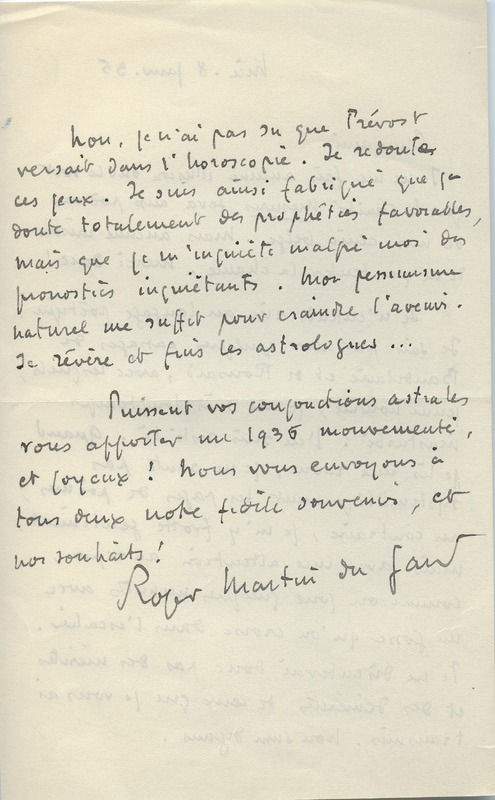 Non, je n'ai pas su que Prévost
versait dans l'horoscopie. Je redoute
ces jeux. Je suis ainsi fabriqué que je
doute totalement des prophéties favorables,
mais que je m'inquiète malgré moi des
pronostics inquiétants. Mon pessimisme
naturel me suffit pour craindre l'avenir.
Je révère et fuis les astrologues ...
Puissent vos conjonctions astrales
vous apporter un 1936 mouvementé,
et joyeux ! Nous vous envoyons à
tous deux notre fidèle souvenir, et
nos souhaits !
Roger Martin du Gard